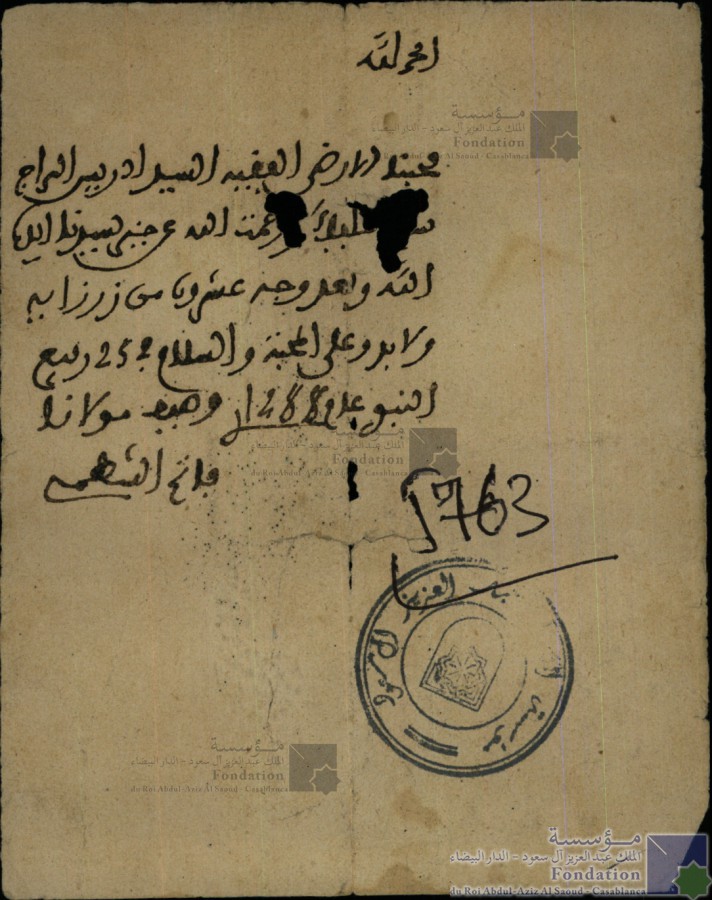 الحمد لله
محبنا الارضى الفقيه السيد ادريس السراج
سلام عليك ورحمت الله عن خير سيدنا ايده
الله وبعد وجه عشرون من زرزاية
ولا بد وعلى المحبة والسلام في 25 ربيع
النبوي عام 1288 وصيف مولانا
الشهمي
J763
مؤسسة
الملك عبد العزيز آل سعود - الدار البيضاء
Fondation
du Roi Abdul-Aziz Al Saoud - Casablanca
مؤسسة
الملك عبد العزيز آل سعود - الدار البيضاء
Fondation
du Roi Abdul-Aziz Al Saoud - Casablanca
مؤسسة
الملك عبد العزيز آل سعود - الدار البيضاء
Fondation
du Roi Abdul-Aziz Al Saoud - Casablanca
مؤسسة
الملك عبد العزيز آل سعود - الدار البيضاء
Fondation
du Roi Abdul-Aziz Al Saoud - Casablanca